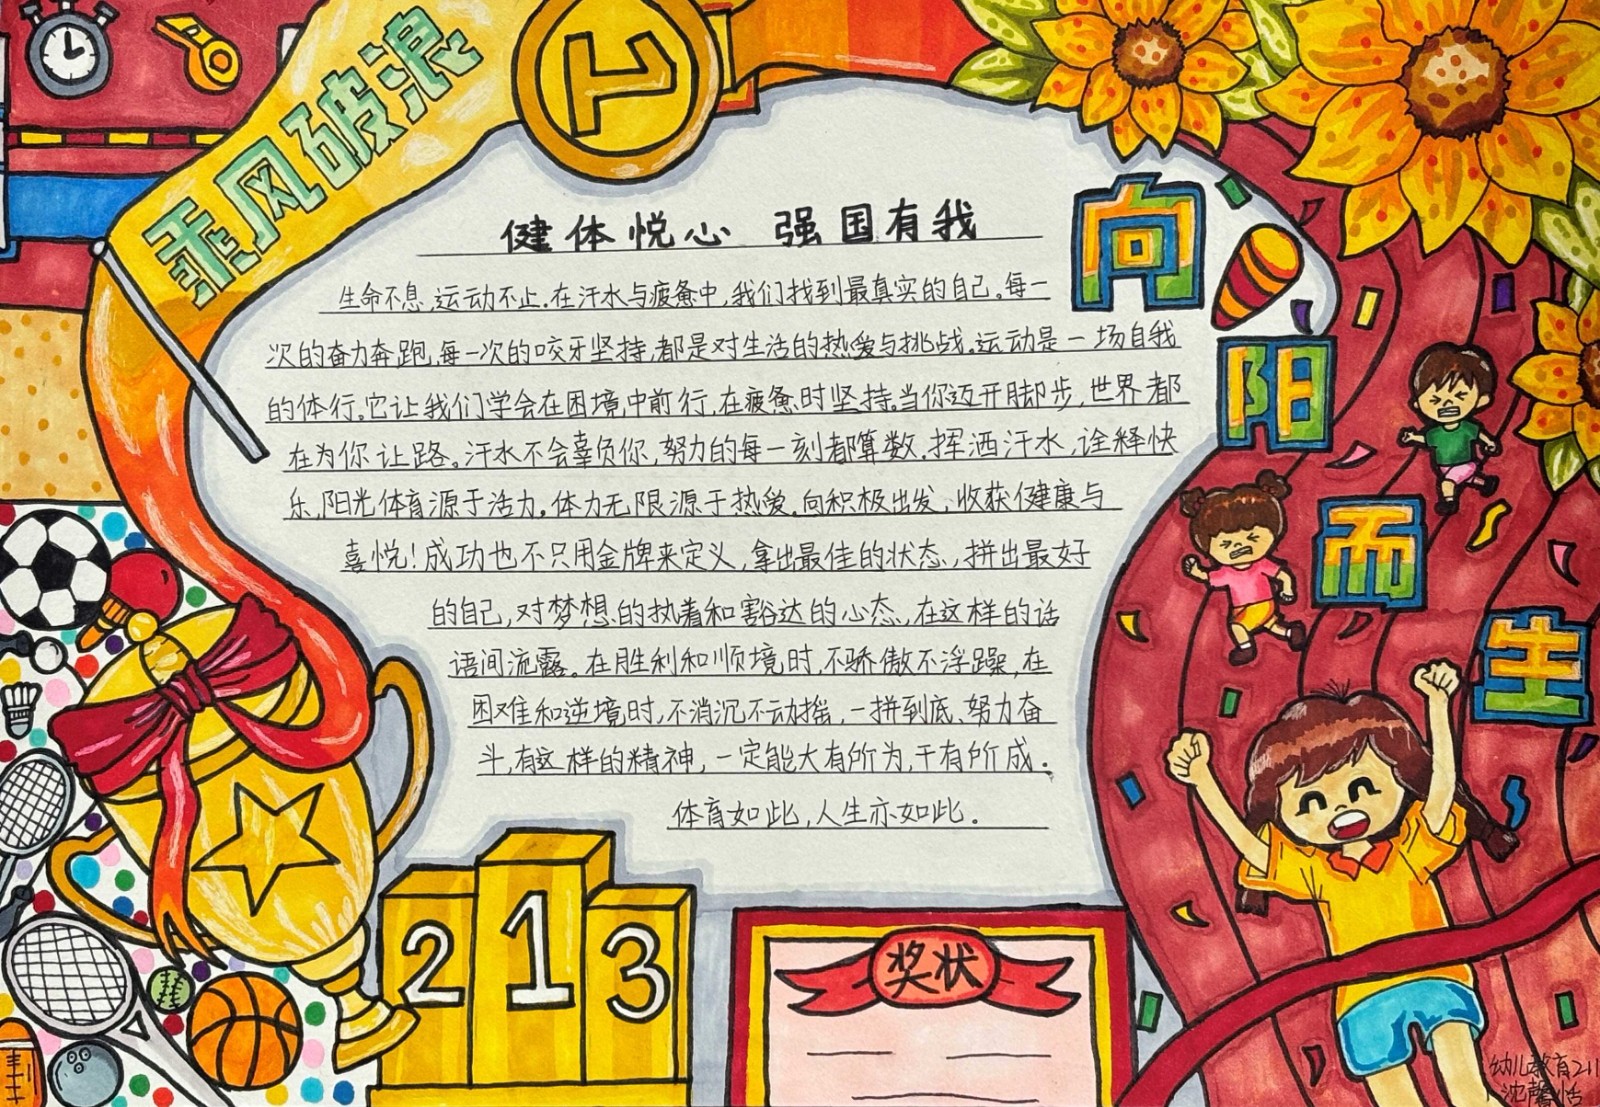 乘风破浪
1
健体悦心 强国有我
生命不息,运动不止.在汗水与疲惫中,我们找到最真实的自己。每一
次的奋力奔跑,每一次的咬牙坚持,都是对生活的热爱与挑战。运动是一场自我
的体行。它让我们学会在困境中前行,在疲惫时坚持。当你迈开脚步,世界都
在为你让路。汗水不会辜负你,努力的每一刻都算数.挥洒汗水,诠释快
乐,阳光体育源于活力。体力无限源于热爱。向积极出发,收获健康与
喜悦!成功也不只用金牌来定义,拿出最佳的状态,拼出最好
的自己,对梦想的执着和豁达的心态,在这样的话
语间流露。在胜利和顺境时,不骄傲不浮躁,在
困难和逆境时,不消沉不动摇,一拼到底、努力奋
斗,有这样的精神,一定能大有所为,干有所成.
体育如此,人生亦如此.
向阳而生
2 1 3
奖状
幼儿教育211
沈馨恬